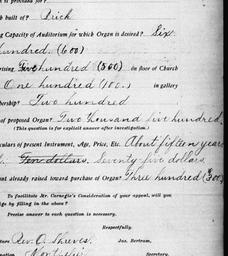 built of? Brick
ng Capacity of Auditorium for which Organ is desired? Six
hundred (600)
rising Five hundred (500) in floor of Church
One hundred (100.) in gallery
bership? Two hundred
of proposed Organ? Two thousand five hundred
(This question is for explicit answer after investigation.)
culars of present Instrument, Age, Price, Etc. About fifteen years
Ten dollars. Seventy-five dollars
nt already raised toward purchase of Organ? Three hundred (300)
To facilitate Mr. Carnegie's Consideration of your appeal, will you
ge by filling in the above?
Precise answer to each question is necessary.
Respectfully,
Jas. Bertram,
ture Rev. O. Shreves.
Secretary.